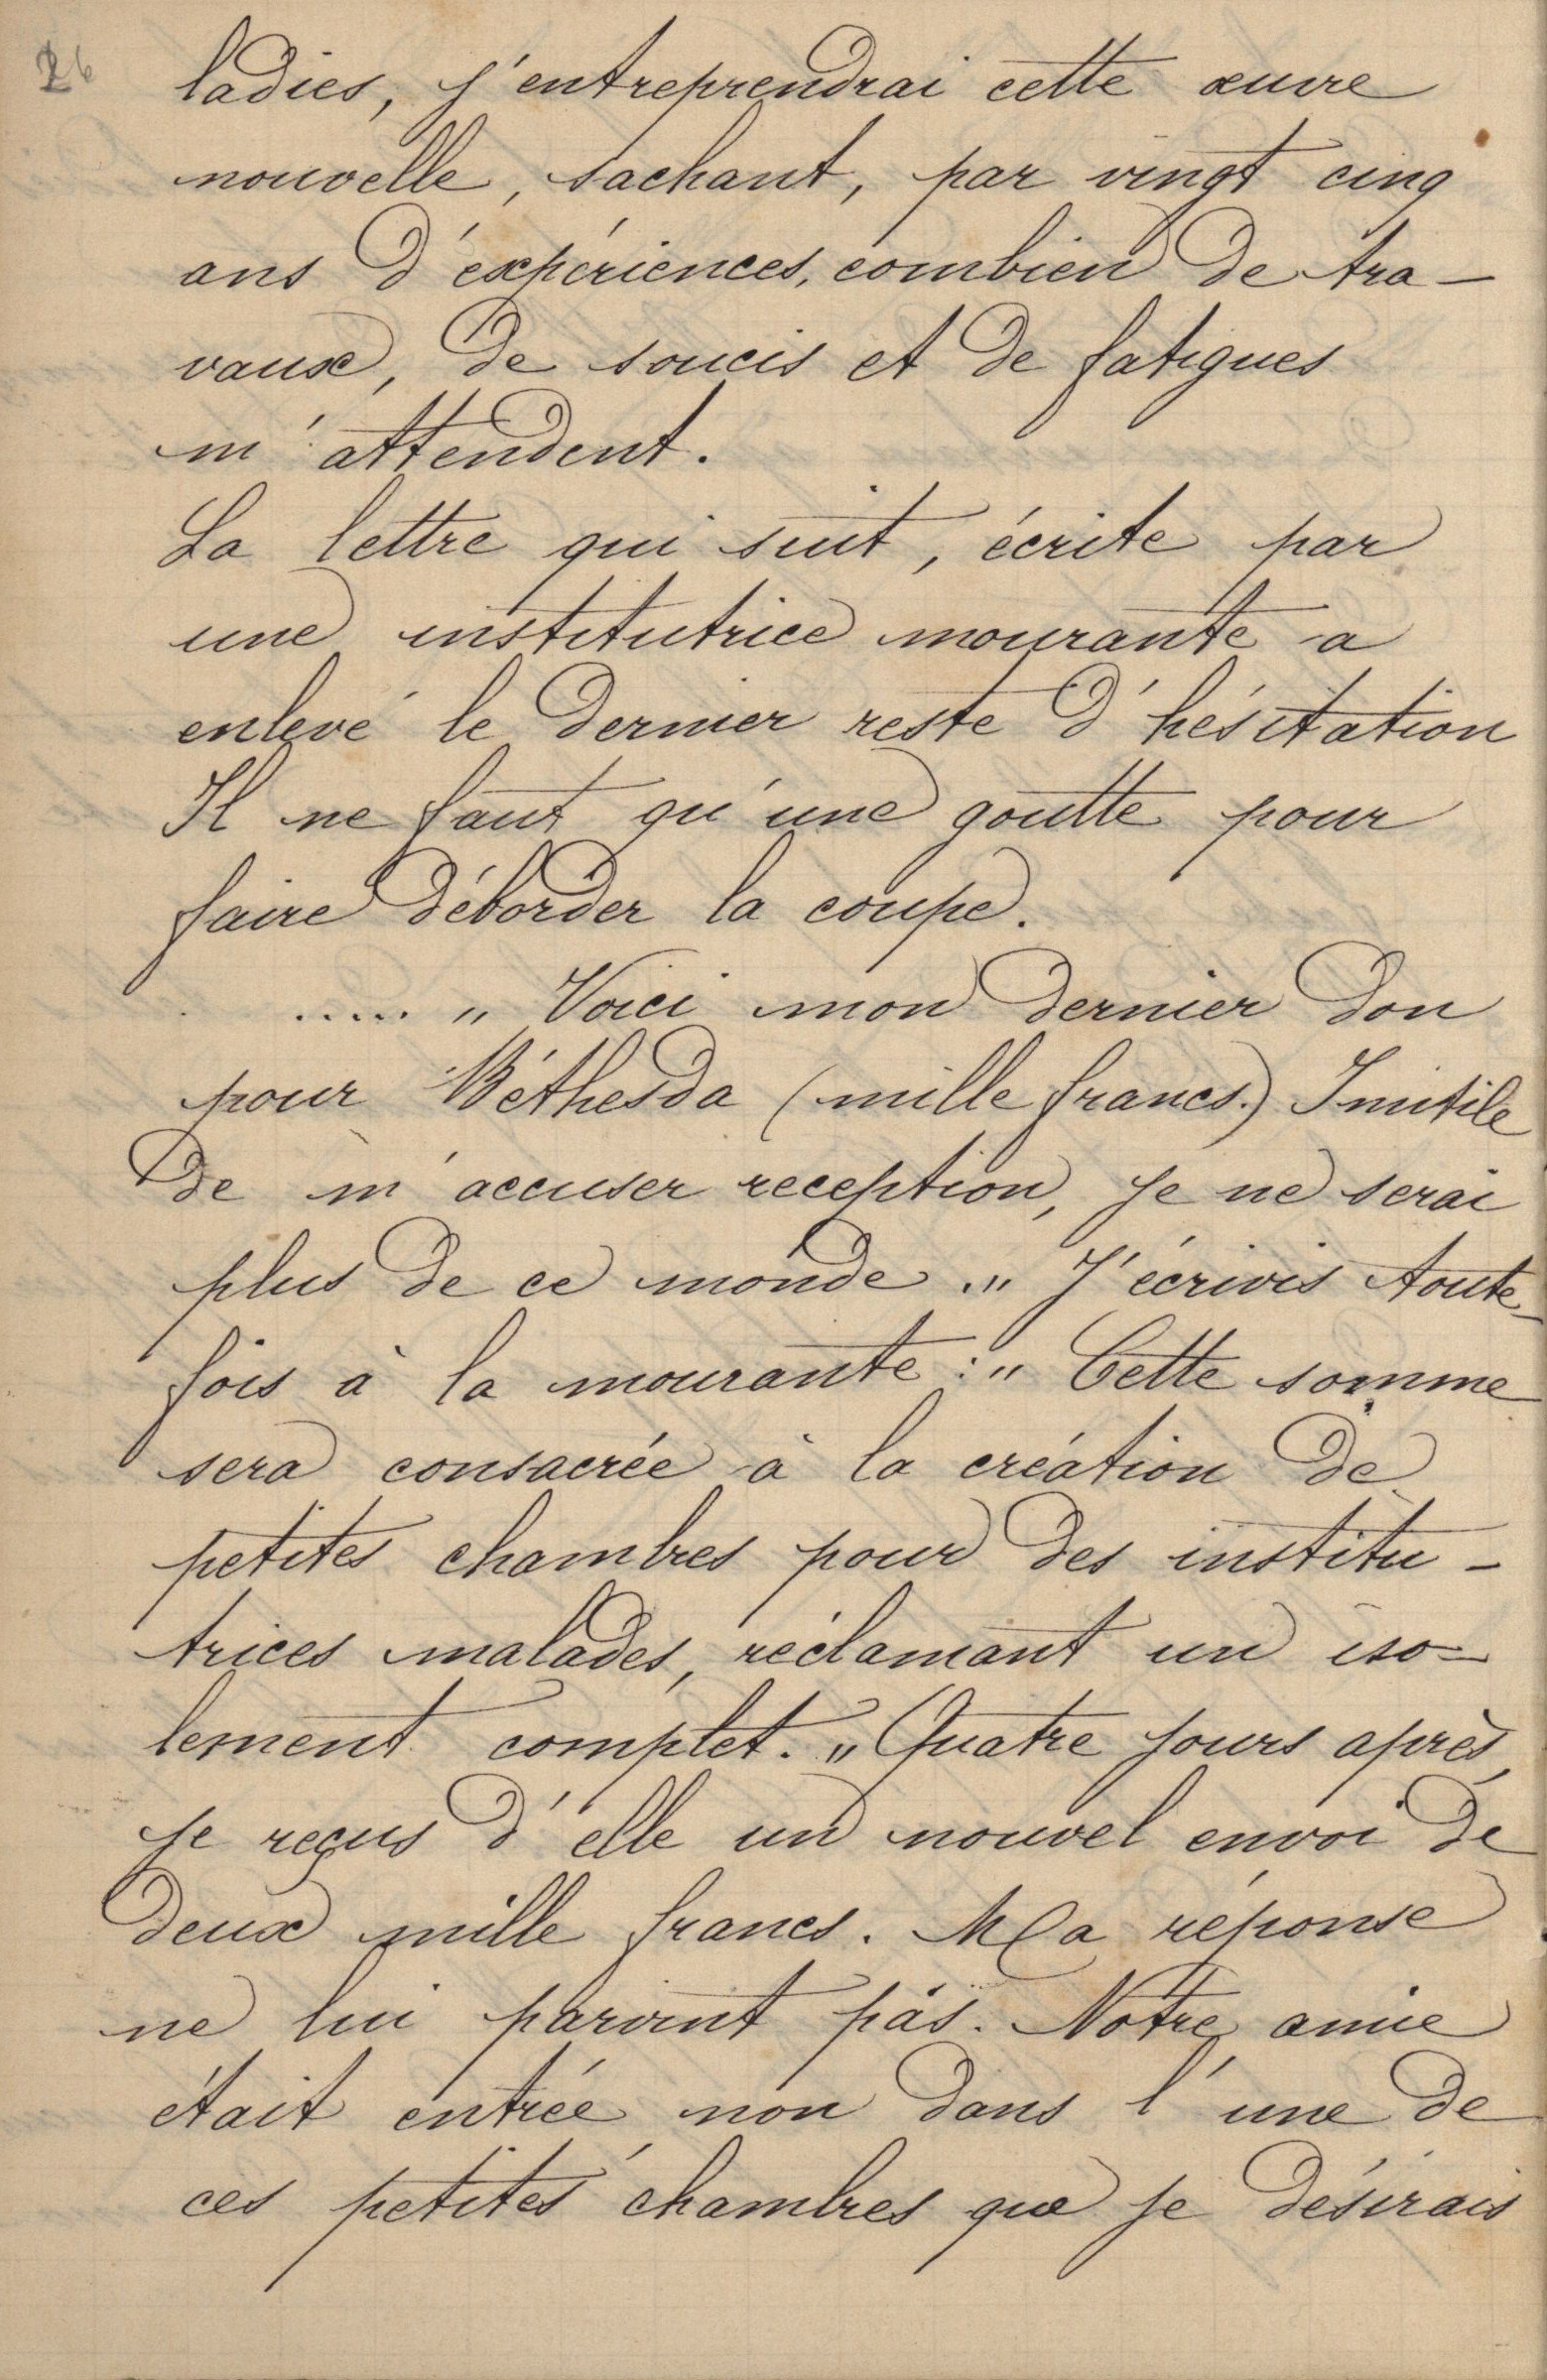 26
ladies, j'entreprendrai cette œuvre
nouvelle, sachant, par vingt cinq
ans d'expériences, combien de tra-
vaux, de soucis et de fatigues
m'attendent.
La lettre qui suit, écrite par
une institutrice mourante a
enlevé le dernier reste d'hésitation
Il ne faut qu'une goutte pour
faire déborder la coupe.
..... " Voici mon dernier don
pour Béthesda (mille francs.) Inutile
de m'accuser reception, je ne serai
plus de ce monde ." J'écrivis toute-
fois à la mourante : " Cette somme
sera consacrée à la création de
petites chambres pour des institu-
trices malades, réclamant un iso-
lement complet. " Quatre jours après,
je reçus d'elle un nouvel envoi de
deux mille francs. Ma réponse
ne lui parvint pas. Notre amie
était entrée non dans l'une de
ces petites chambres que je désirais